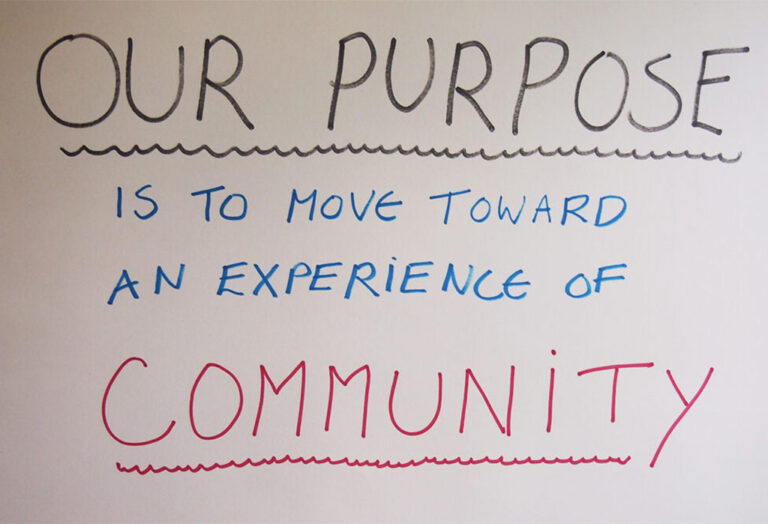 OUR PURPOSE
IS TO MOVE TOWARD
AN EXPERIENCE OF
COMMUNITY